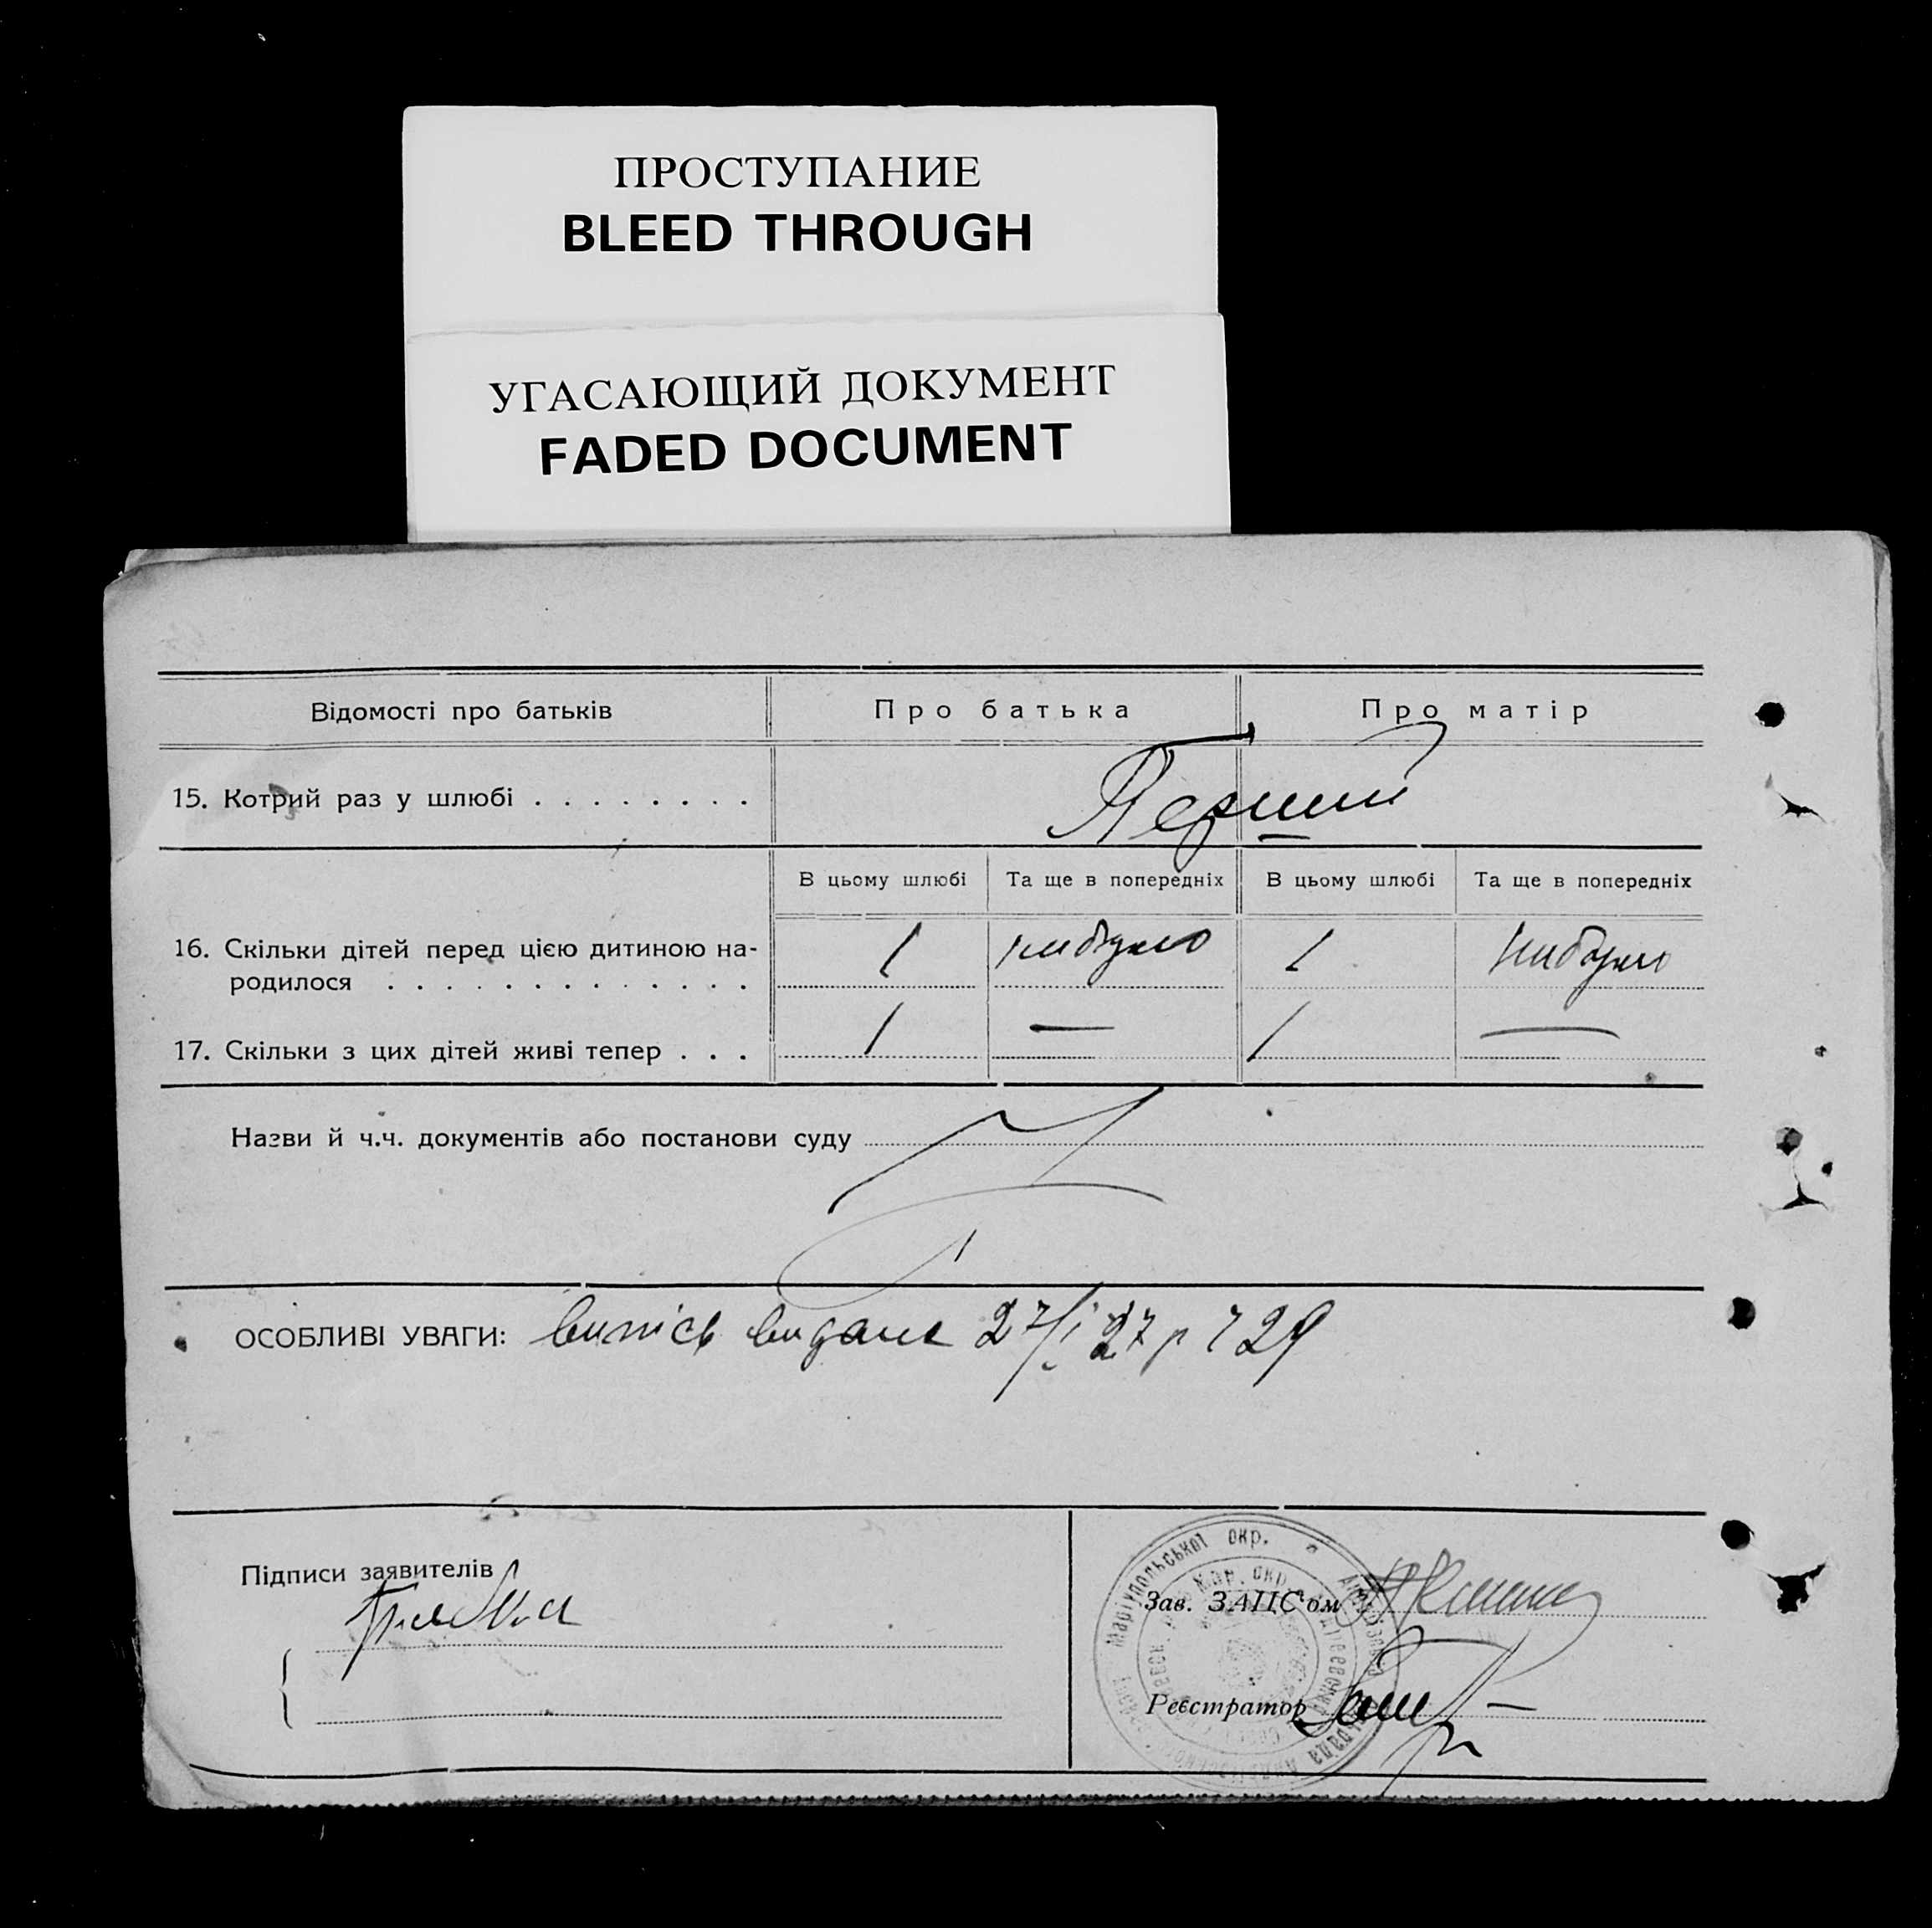 ПРОСТУПАНИЕ
BLEED THROUGH
УГАСАЮЩИЙ ДОКУМЕНТ
FADED DOCUMENT
Відомості про батьків Про батька Про матір
15. Котрий раз у шлюбі . . . . . . . . Перший
В цьому шлюбі Та ще в попередніх В цьому шлюбі Та ще в попередніх
16. Скільки дітей перед цією дитиною на- 1 нибуло 1 нибуло
родилося . . . . . . . . . . . . .
17. Скільки з цих дітей живі тепер . . . 1 — 1 —
Назви й ч.ч. документів або постанови суду
ОСОБЛИВІ УВАГИ: випісь видана 27/I 27 р 729
Підписи заявителів
Маріупольської окр.
Зав. ЗАЦС'ом
Реєстратор